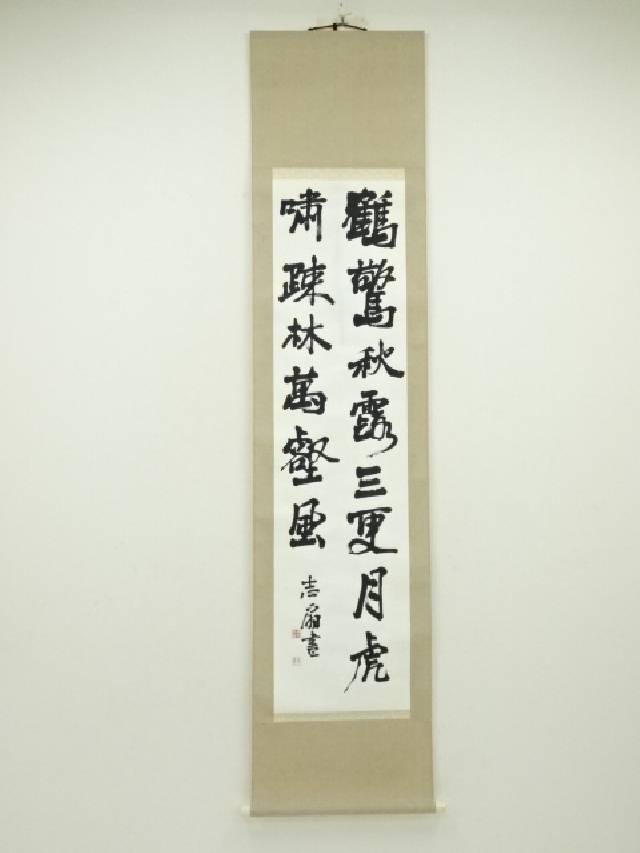 鶴驚秋露三更月虎
嘯疎林萬壑風
志扇書